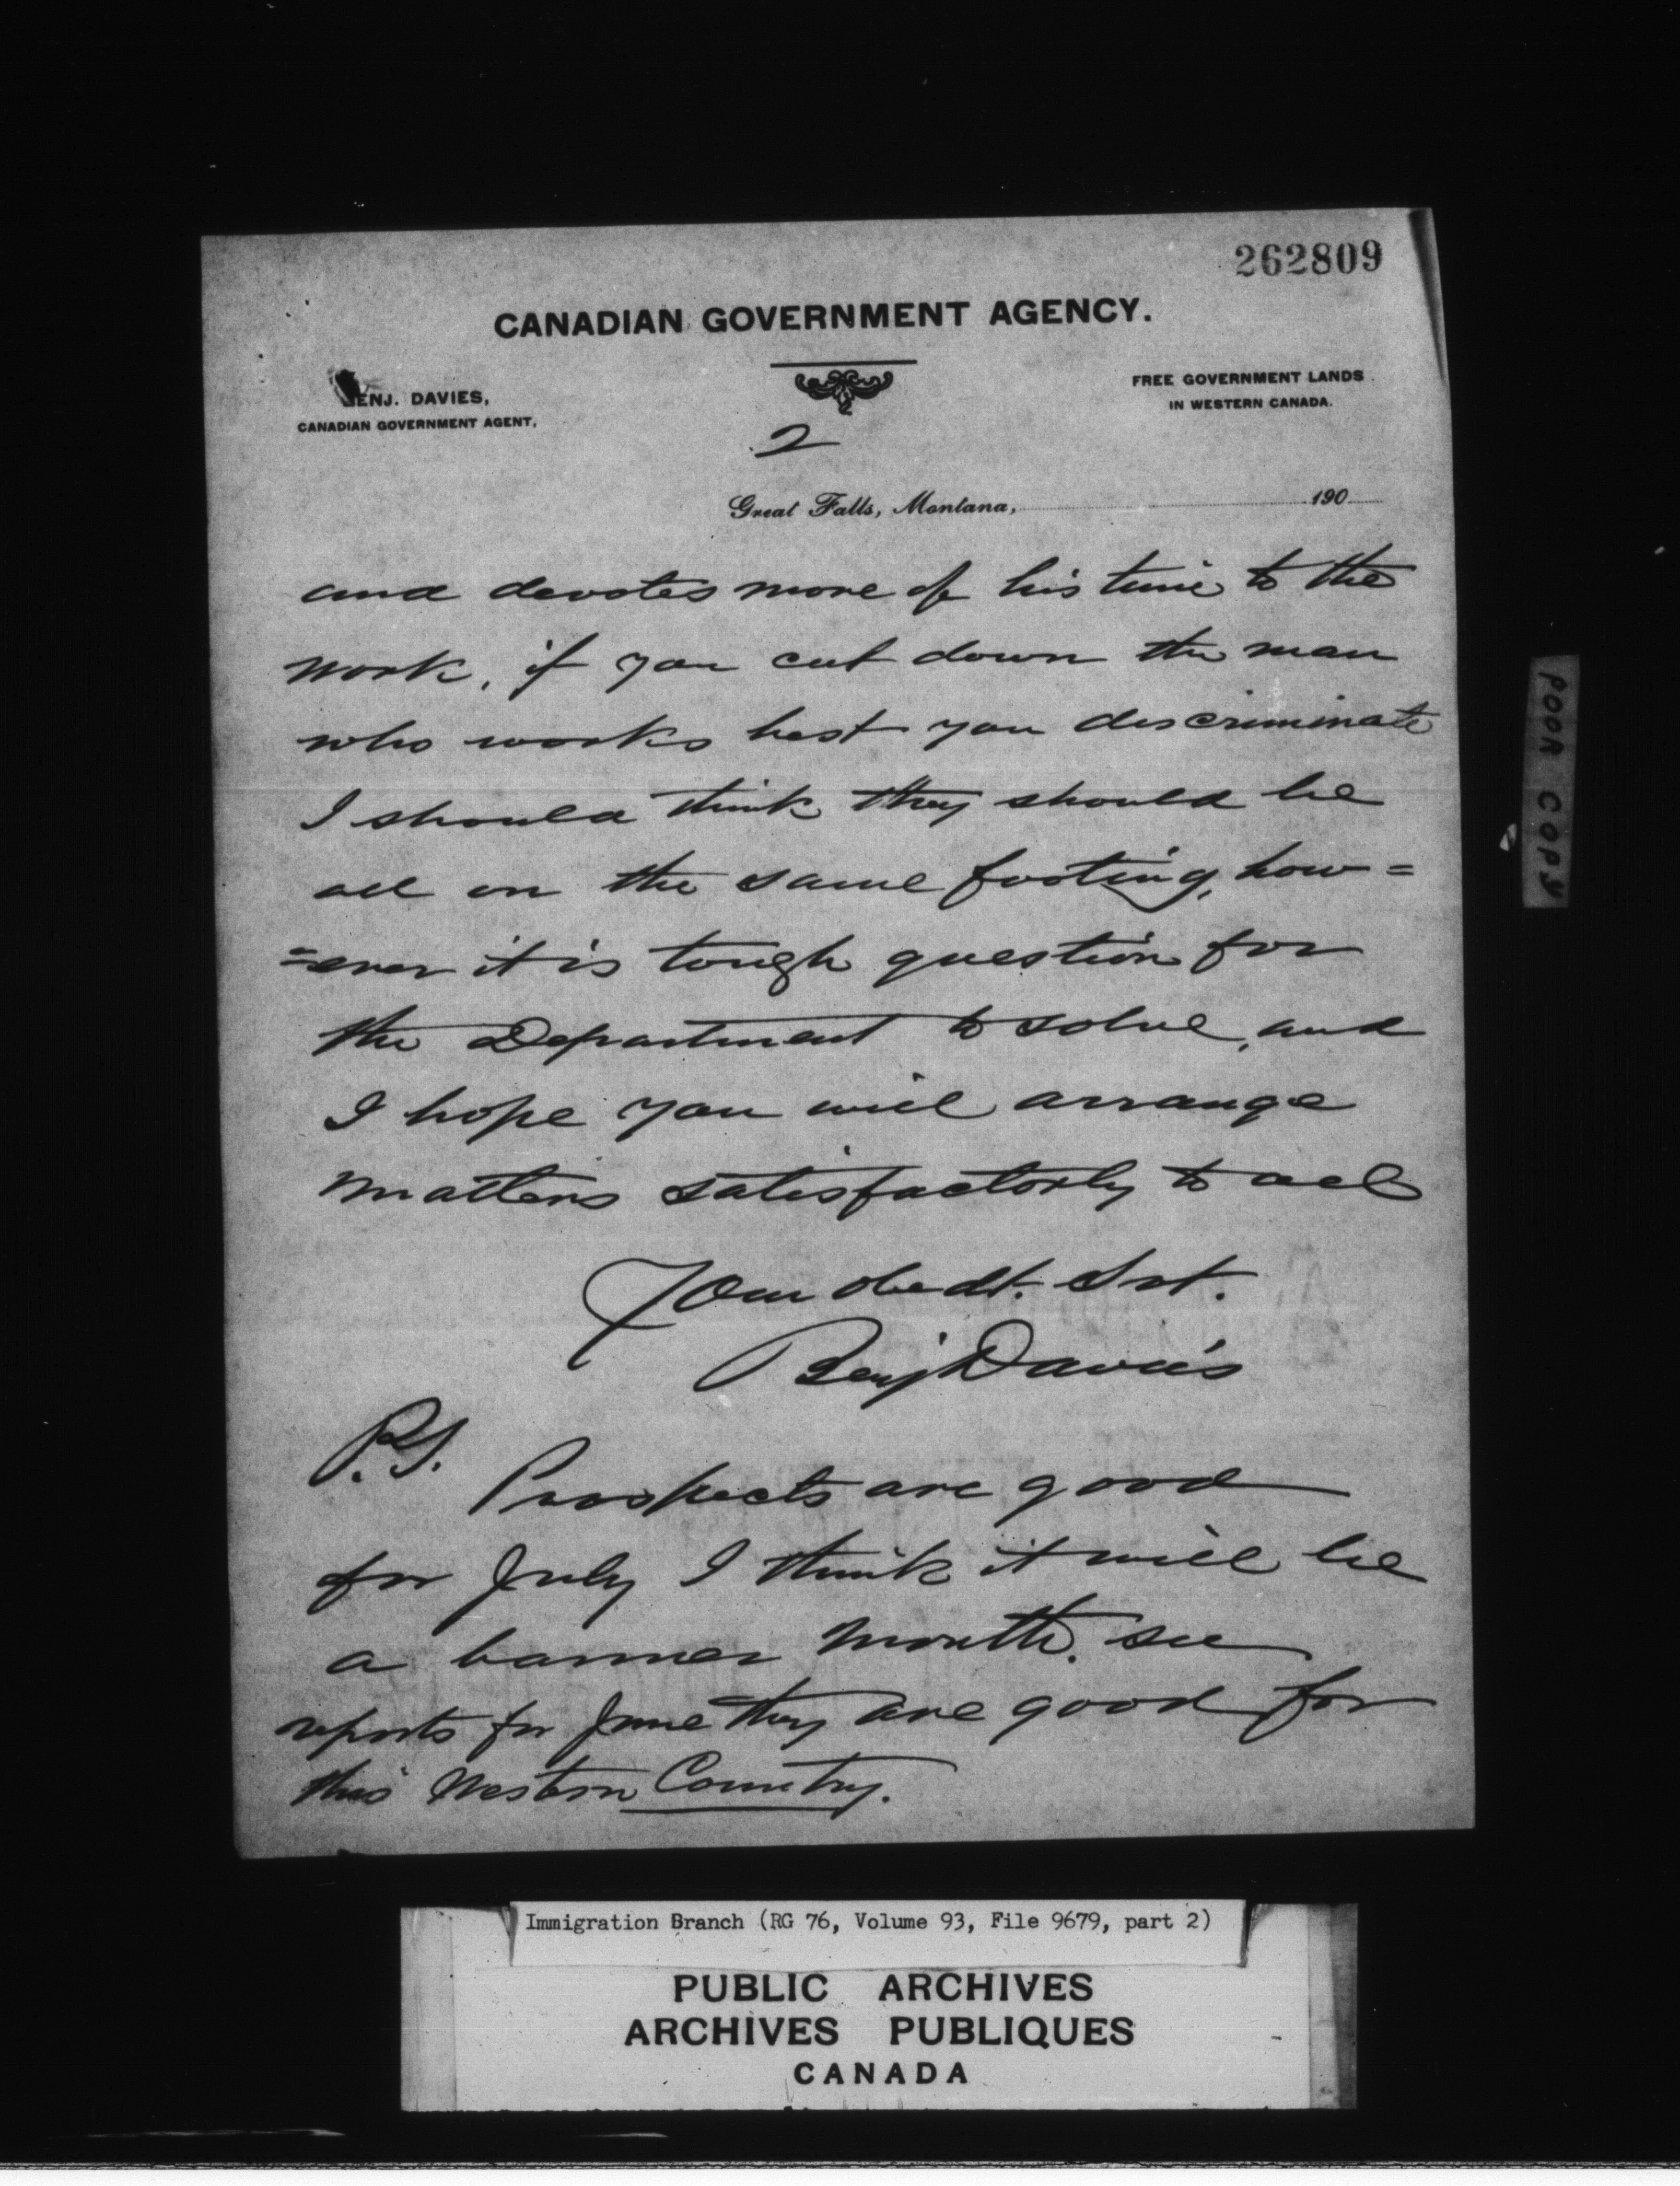 262809
CANADIAN GOVERNMENT AGENCY.
BENJ. DAVIES,
CANADIAN GOVERNMENT AGENT,
FREE GOVERNMENT LANDS
IN WESTERN CANADA.
2
Great Falls, Montana, 190
and devotes more of his time to the
work, if you cut down the man
who works best you descriminate
I should think they should be
all on the same footing, how=
=ever it is tough question for
the Department to solve, and
I hope you will arrange
matters satisfactorly to all
Your obedt. Svt.
Benj Davies
P.S.
Prospects are good
for July I think it will be
a banner month. see
reports for June they are good for
this Western Country.
POOR COPY
Immigration Branch (RG 76, Volume 93, File 9679, part 2)
PUBLIC ARCHIVES
ARCHIVES PUBLIQUES
CANADA